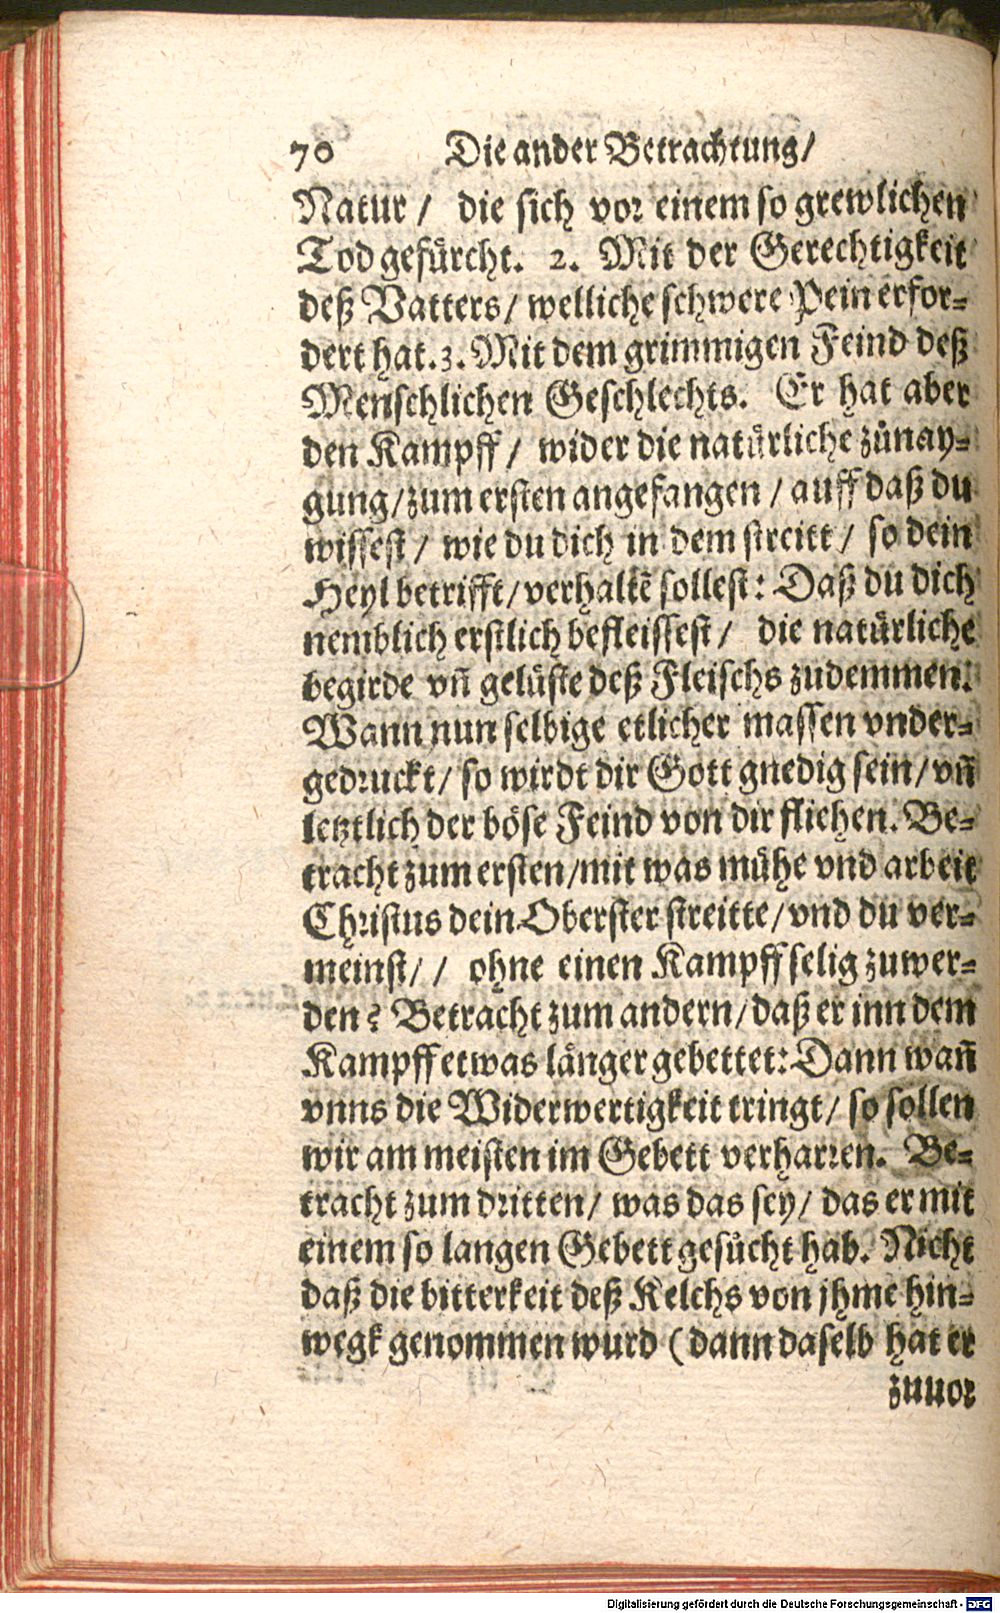 70 Die ander Betrachtung/
Natur / die sich vor einem so grewlichen
Tod gefürcht. 2. Mit der Gerechtigkeit
deß Vatters / welliche schwere Pein erfor-
dert hat. 3. Mit dem grimmigen Feind deß
Menschlichen Geschlechts. Er hat aber
den Kampff / wider die natürliche zůnay-
gung / zum ersten angefangen / auff daß du
wissest / wie du dich in dem streitt / so dein
Heyl betrifft / verhaltẽ sollest: Daß du dich
nemblich erstlich befleissest / die natürliche
begirde vñ gelüste deß Fleischs zudemmen.
Wann nun selbige etlicher massen vnder-
gedruckt / so wirdt dir Gott gnedig sein / vñ
letztlich der böse Feind von dir fliehen. Be-
tracht zum ersten / mit was mühe vnd arbeit
Christus dein Oberster streitte / vnd du ver-
meinst / / ohne einen Kampff selig zuwer-
den? Betracht zum andern / daß er inn dem
Kampff etwas länger gebettet: Dann wañ
vnns die Widerwertigkeit tringt / so sollen
wir am meisten im Gebett verharren. Be-
tracht zum dritten / was das sey / das er mit
einem so langen Gebett gesůcht hab. Nicht
daß die bitterkeit deß Kelchs von jhme hin-
wegk genommen wurd (dann daselb hat er
zuuor
Digitalisierung gefördert durch die Deutsche Forschungsgemeinschaft - DFG